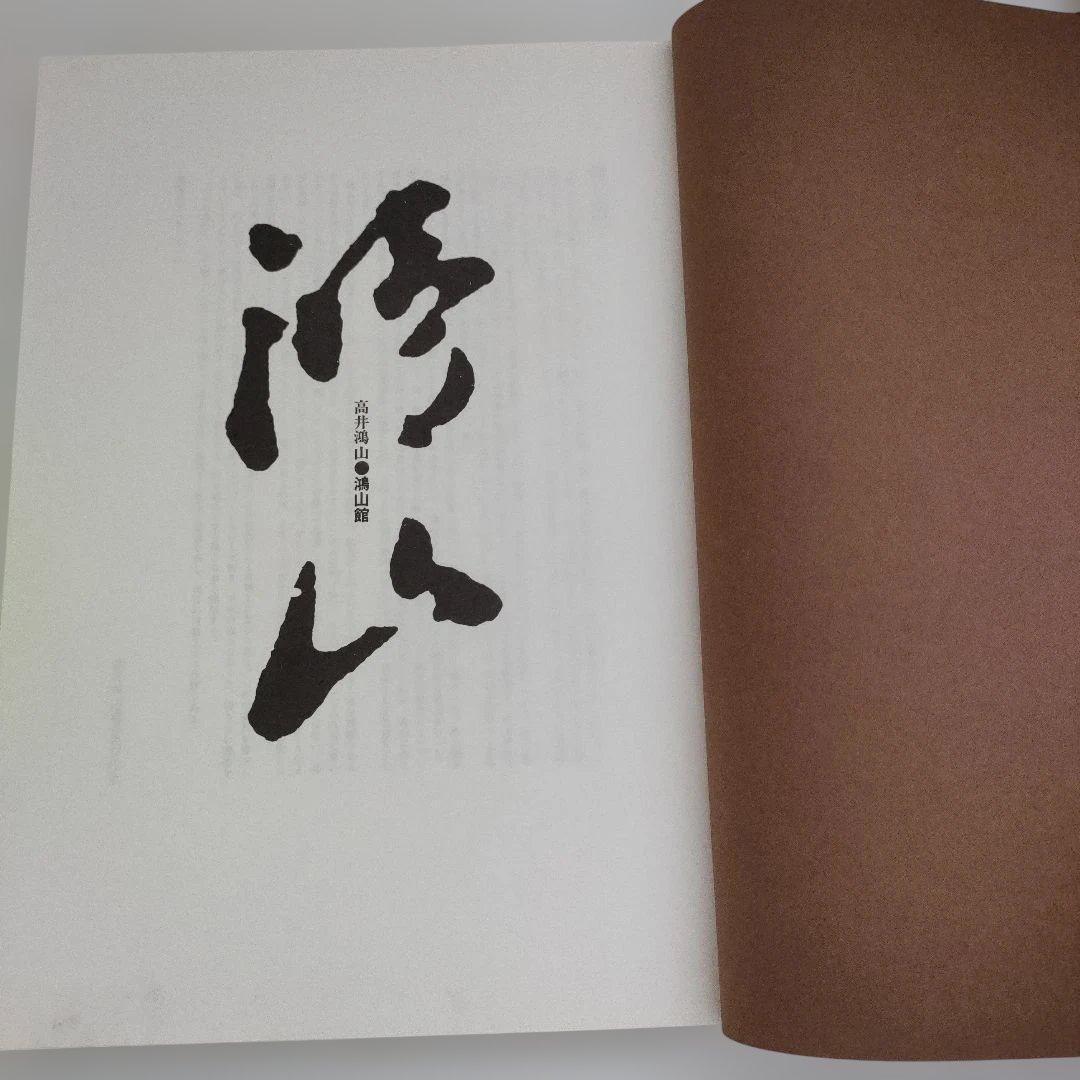 鴻山
高井鴻山●鴻山館